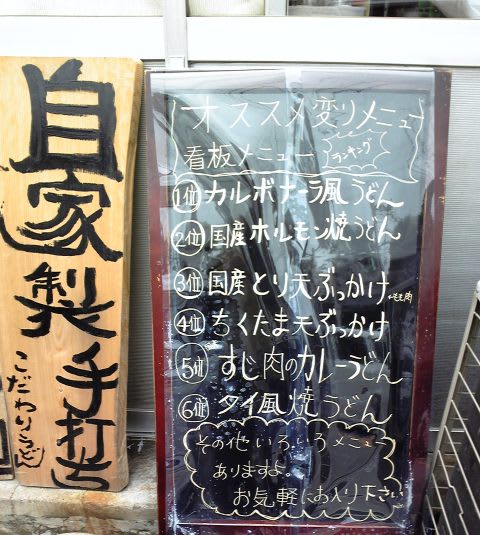 自家製
手打ち
こだわりうどん
オススメ変りメニュー
看板メニュー
ランキング
1位 カルボナーラ風うどん
2位 国産ホルモン焼うどん
3位 国産とり天ぶっかけ
←もも肉
4位 ちくたま天ぶっかけ
5位 すじ肉のカレーうどん
6位 タイ風焼うどん
その他いろいろメニュー
ありますよ。
お気軽にお入り下さい